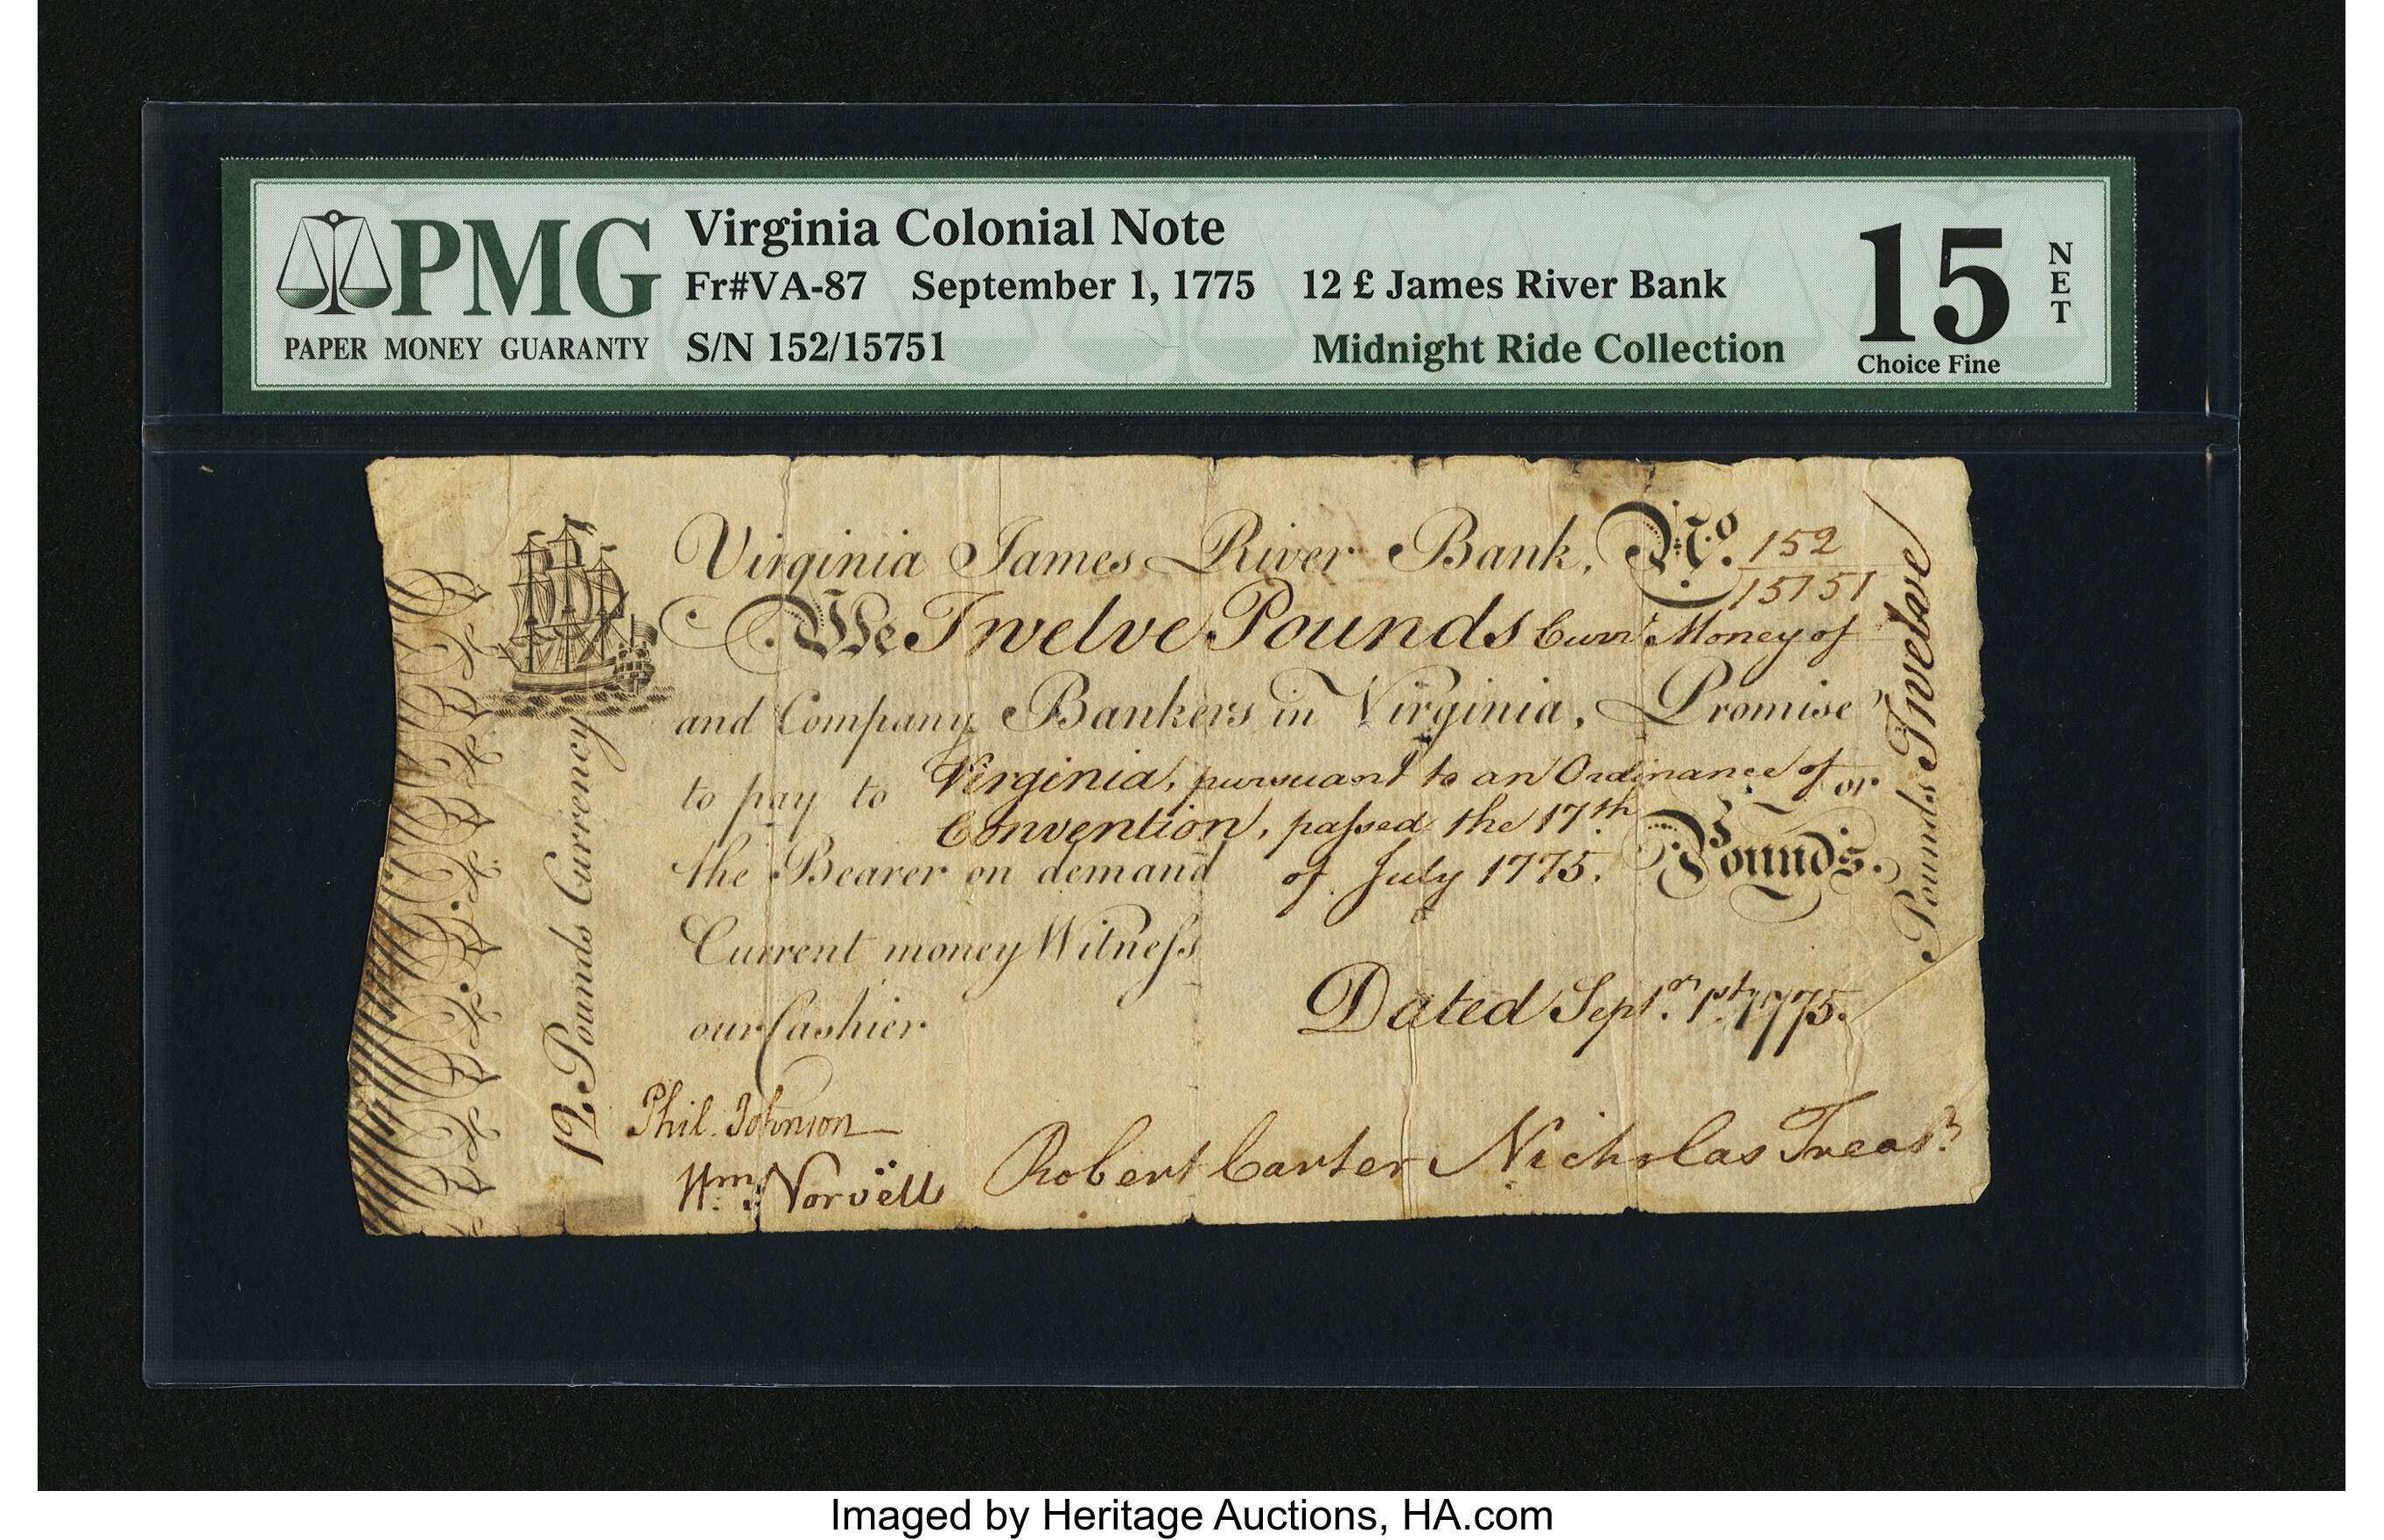 PMG
PAPER MONEY GUARANTY
Virginia Colonial Note
Fr#VA-87 September 1, 1775 12 £ James River Bank
S/N 152/15751
Midnight Ride Collection
15
NET
Choice Fine
Virginia James River Bank, No. 152
15751
We Twelve Pounds Curr.t Money of
and Company Bankers in Virginia, Promise
to pay to Virginia, pursuant to an Ordinance of or
Convention, paſsed the 17th
the Bearer on demand of July 1775. Pounds.
Current money Witneſs
our Cashier
Dated Sept.r 1st, 1775.
12 Pounds Currency
Pounds Twelve
Phil. Johnson
Wm. Norvëll
Robert Carter Nicholas Treasr.
Imaged by Heritage Auctions, HA.com